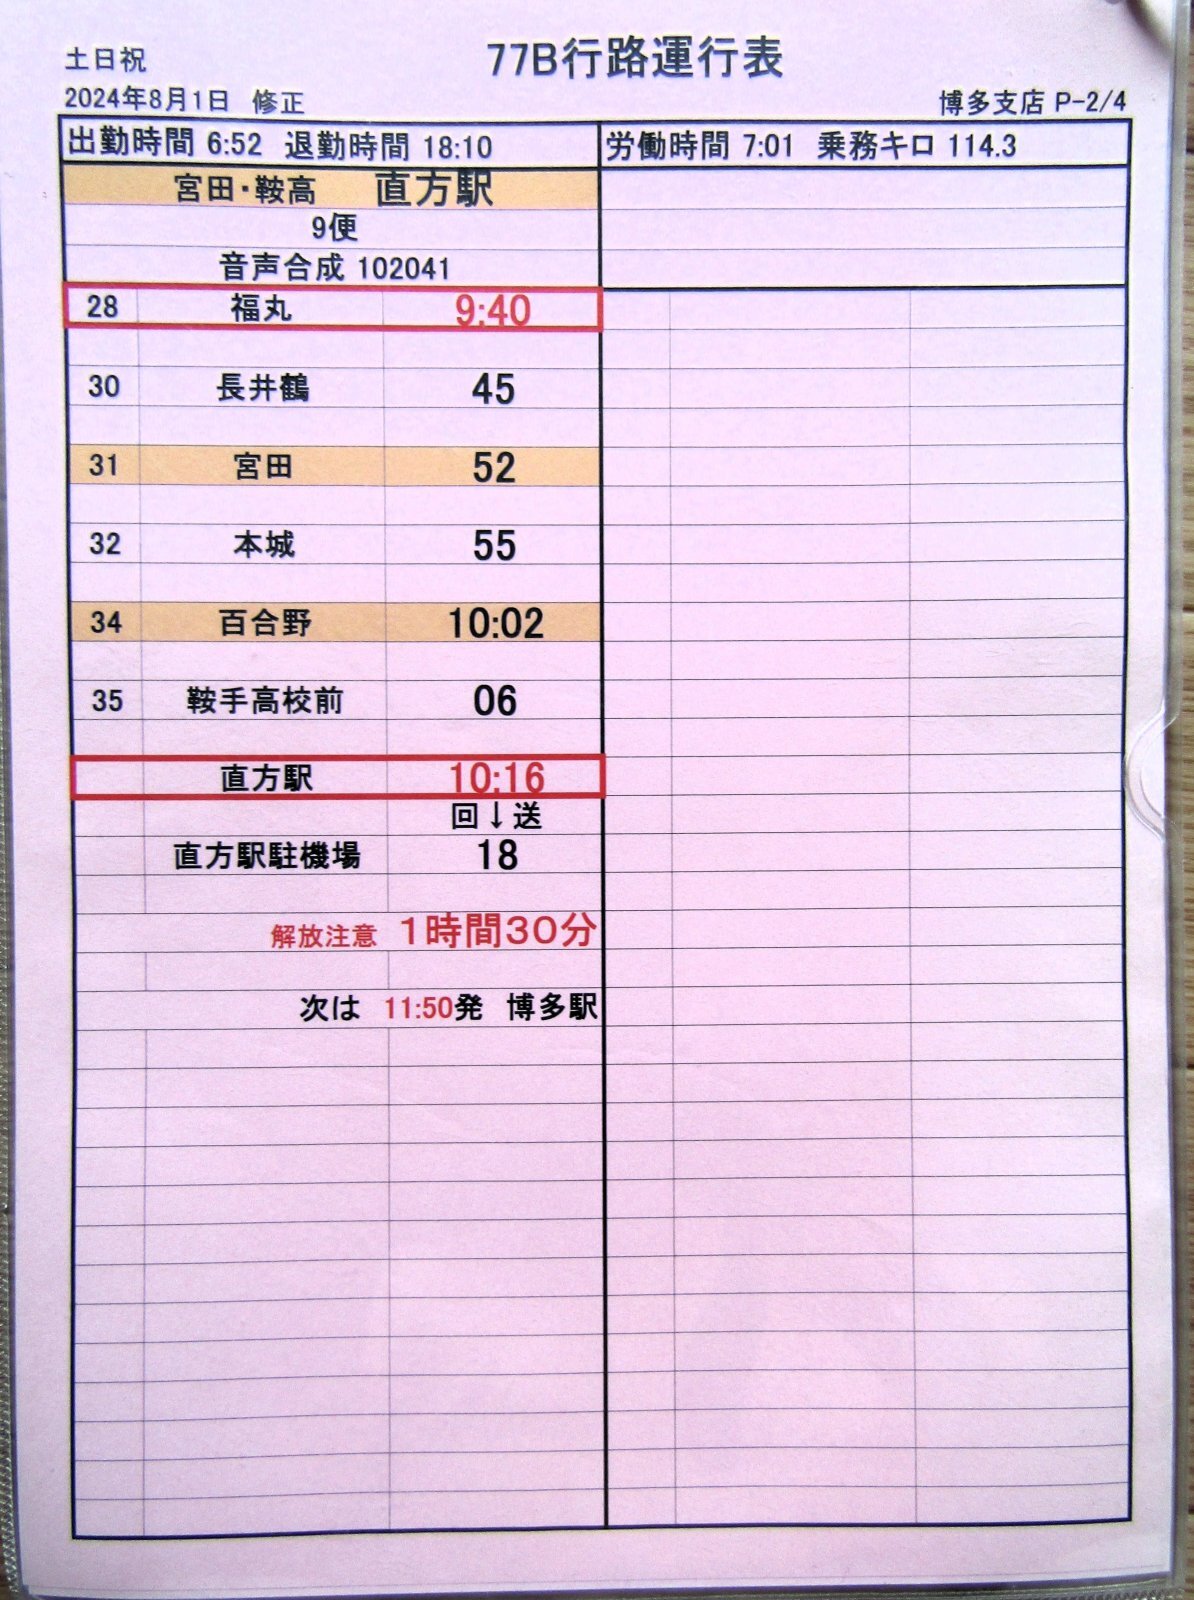 土日祝
77B行路運行表
2024年8月1日 修正
博多支店 P-2/4
出勤時間 6:52 退勤時間 18:10
労働時間 7:01 乗務キロ 114.3
宮田・鞍高 直方駅
9便
音声合成 102041
28 福丸 9:40
30 長井鶴 45
31 宮田 52
32 本城 55
34 百合野 10:02
35 鞍手高校前 06
直方駅 10:16
回↓送
直方駅駐機場 18
解放注意 1時間30分
次は 11:50発 博多駅